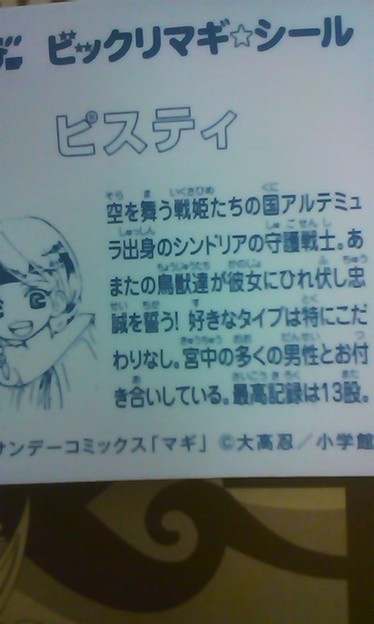 ビックリマギ☆シール
ピスティ
空を舞う戦姫たちの国アルテミュ
ラ出身のシンドリアの守護戦士。あ
またの鳥獣達が彼女にひれ伏し忠
誠を誓う! 好きなタイプは特にこだ
わりなし。宮中の多くの男性とお付
き合いしている。最高記録は13股。
サンデーコミックス「マギ」 ©大高忍/小学館